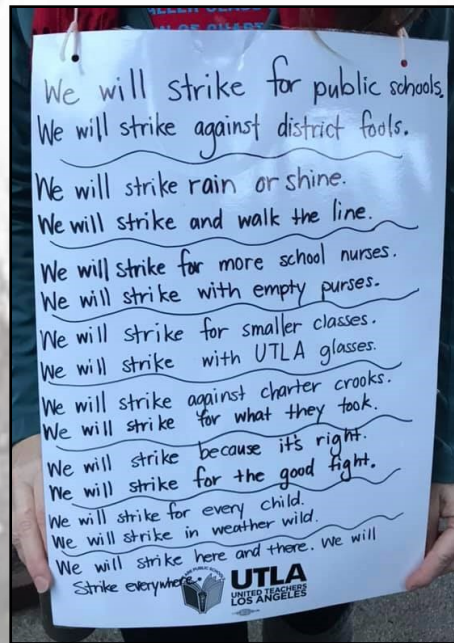 We will strike for public schools.
We will strike against district fools.
We will strike rain or shine.
We will strike and walk the line.
We will strike for more school nurses.
We will strike with empty purses.
We will strike for smaller classes.
We will strike with UTLA glasses.
We will strike against charter crooks.
We will strike for what they took.
We will strike because it's right.
We will strike for the good fight.
We will strike for every child.
We will strike in weather wild.
We will strike here and there. We will
Strike everywhere.
PUBLIC SCHOOLS
UTLA
UNITED TEACHERS
LOS ANGELES